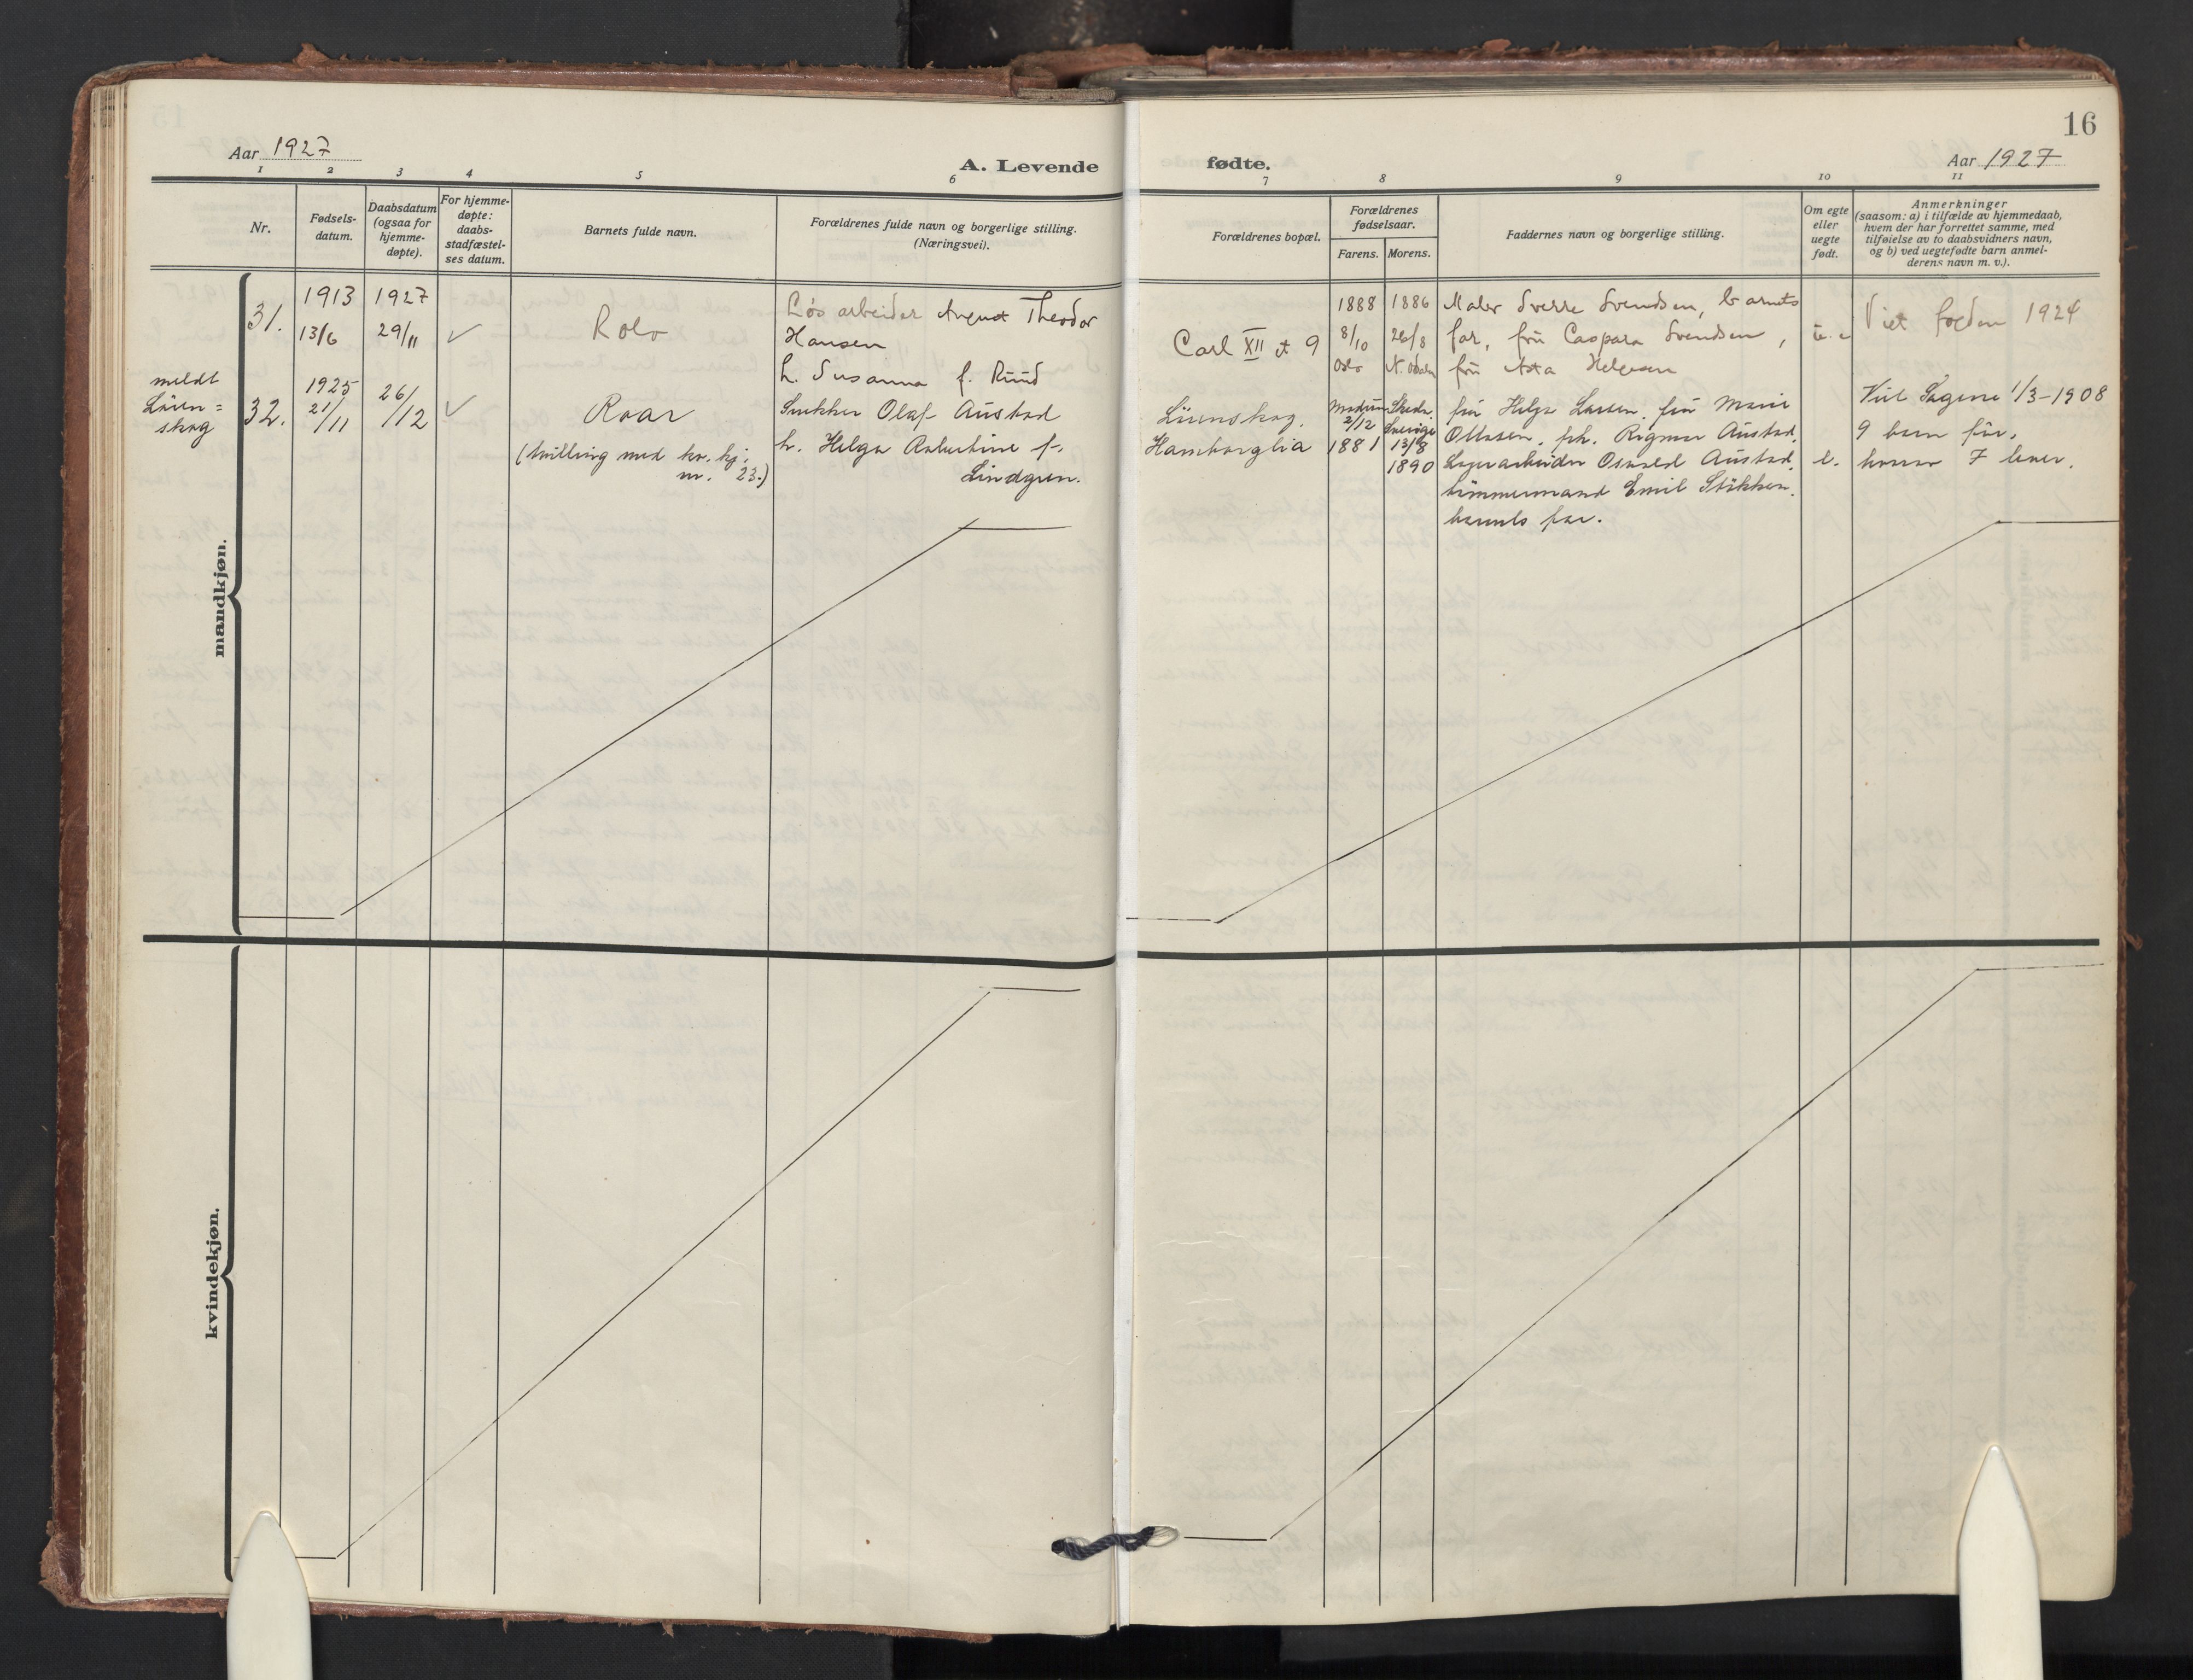 16
Aar 1927
A. Levende
fødte.
Aar 1927
1 2 3 4 5 6 7 8 9 10 11
Nr.
Fødsels-
datum.
Daabsdatum
(ogsaa for
hjemme-
døpte).
For hjemme-
døpte:
daabs-
stadfæstel-
ses datum.
Barnets fulde navn.
Forældrenes fulde navn og borgerlige stilling.
(Næringsvei).
Forældrenes bopæl.
Forældrenes
fødselsaar.
Farens. Morens.
Faddernes navn og borgerlige stilling.
Om egte
eller
uegte
født.
Anmerkninger
(saasom: a) i tilfælde av hjemmedaab,
hvem der har forrettet samme, med
tilføielse av to daabsvidners navn,
og b) ved uegtefødte barn anmel-
derens navn m. v.).
mandkjøn.
31.
1913
13/6
1927
29/11
✓
Rolv
Løsarbeider August Theodor
Hansen
h. Susanna f. Ruud
Carl XII gt 9
1888
8/10
Oslo
1886
26/8
N. Odalen
Maler Sverre Svendsen, barnets
far, fru Caspara Svendsen,
fru Asta Helgesen
u. e
Viet borgerl. 1924
meldt
Lören=
skog
32.
1925
21/11
26/12
✓
Roar
(tvilling med kv. kj.
nr. 23.)
Snekker Olaf Austad
h. Helga Albertine f.
Lindgren.
Lörenskog.
Hamborglia
Modum
2/12
1881
Skede.
Sverige
13/8
1890
fru Helga Larsen. fru Marie
Ottesen. frk. Rigmor Austad.
Lagerarbeider Osvald Austad.
tömmermand Emil Stökken.
barnets far.
e.
Viet Sagene 1/3-1908
9 barn för.
hvorav 7 lever.
kvindekjøn.